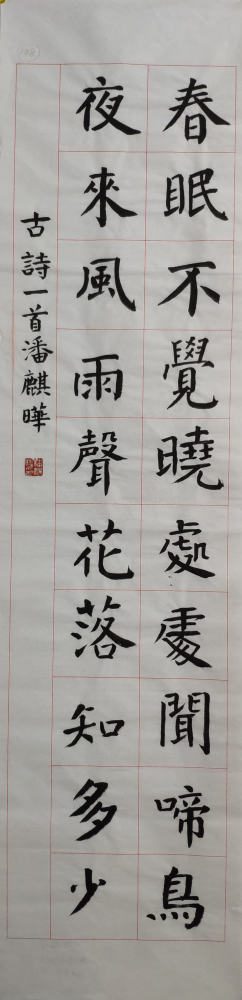 春眠不覺曉處處聞啼鳥
夜來風雨聲花落知多少
古詩一首潘麒曄